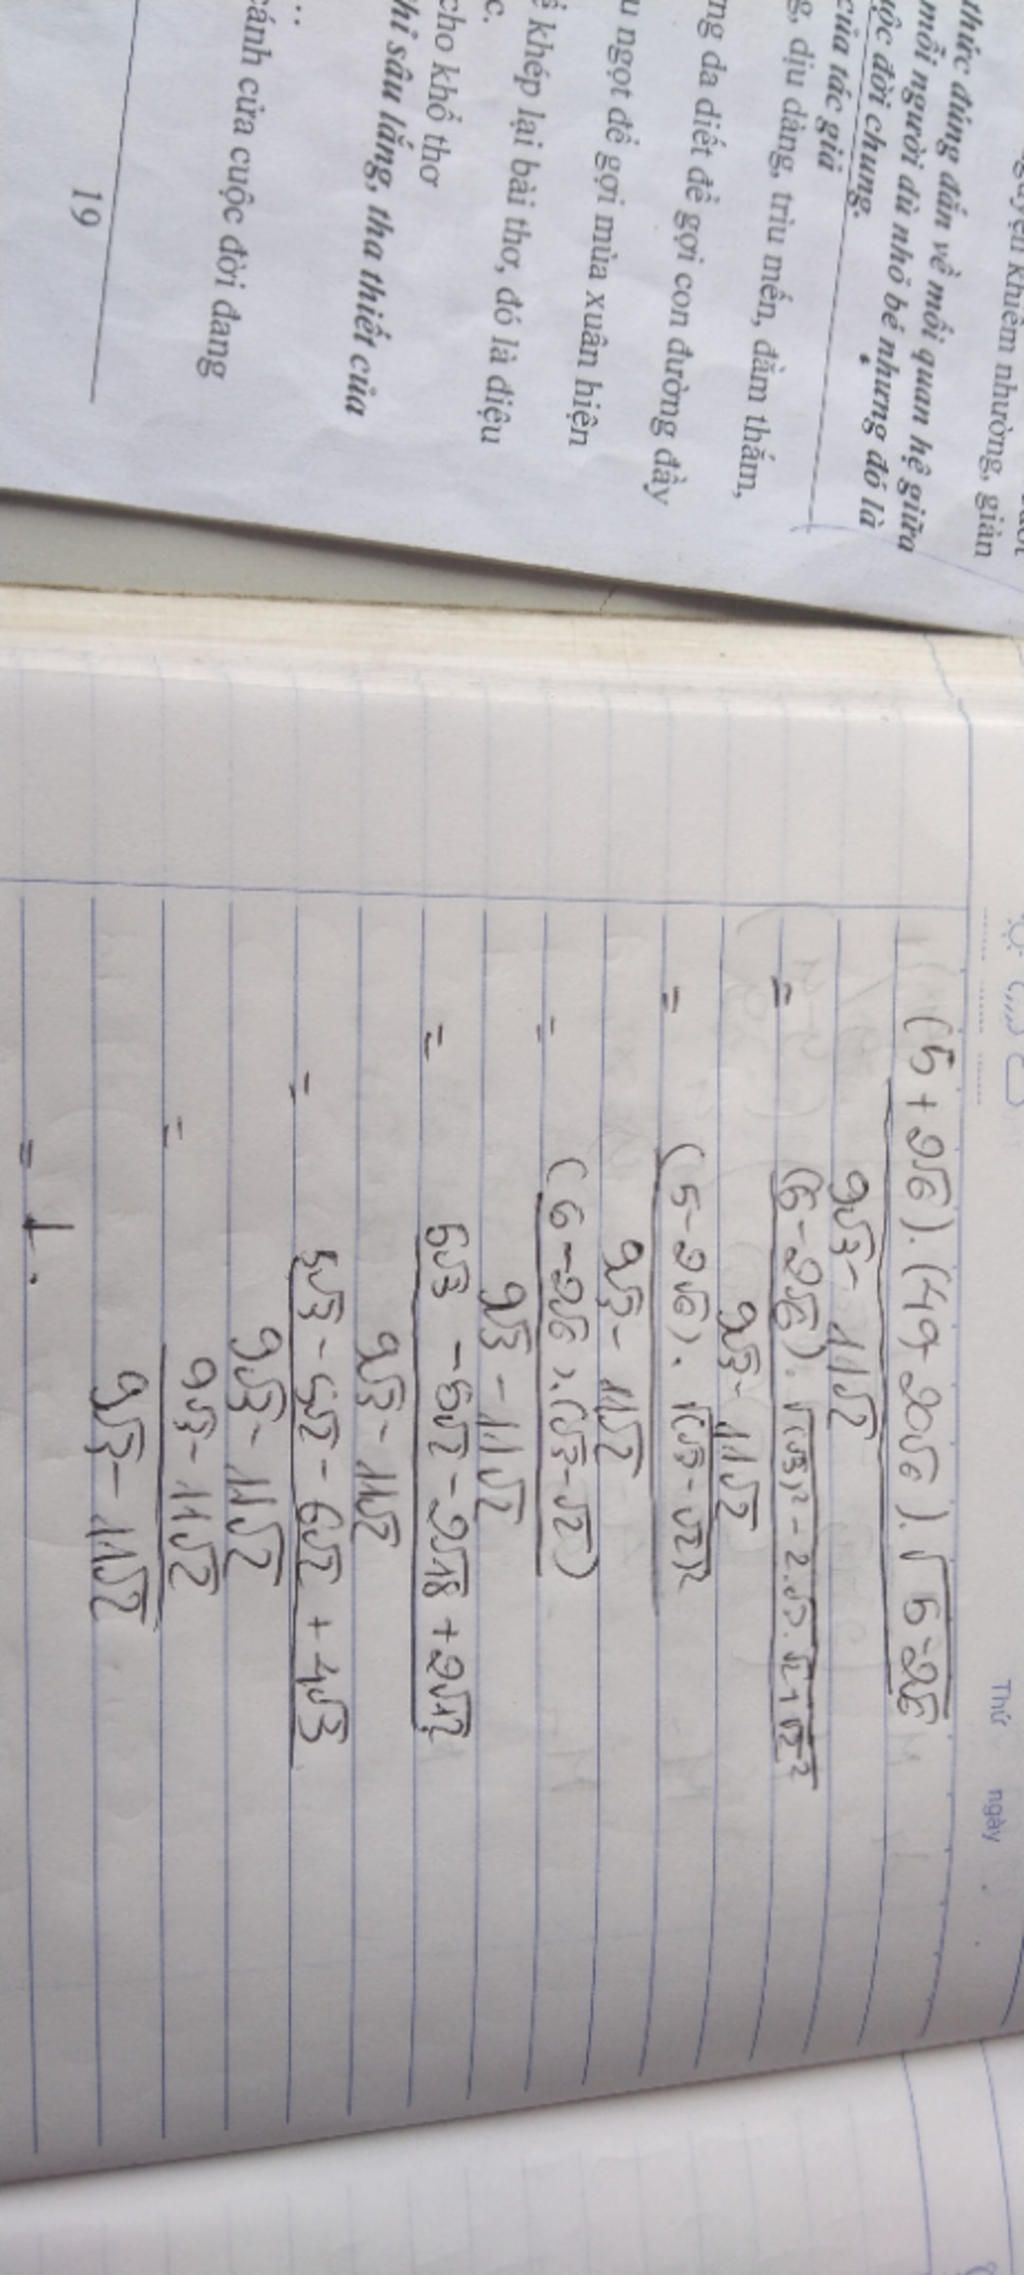 khiêm nhường, giản
thức đúng đắn về mối quan hệ giữa
mỗi người dù nhỏ bé nhưng đó là
đời chung.
của tác giả
dịu dàng, trìu mến, đằm thắm,
da diết để gợi con đường đầy
ngọt để gợi mùa xuân hiện
khép lại bài thơ, đó là điệu
c.
cho khổ thơ
sâu lắng, tha thiết của
..
cánh cửa cuộc đời đang
19
Thứ ngày
(5+2√6).(49-20√6).√5-2√6
9√3-11√2
= (5-2√6).√(√3)²-2.√3.√2+√2²
9√3-11√2
= (5-2√6).√(√3-√2)²
9√3-11√2
= (5-2√6).(√3-√2)
9√3-11√2
= 5√3-5√2-2√18+2√12
9√3-11√2
= 5√3-5√2-6√2+4√3
9√3-11√2
= 9√3-11√2
9√3-11√2
= 1.